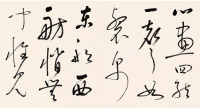 心畫四弦
一聲如
裂帛
東船西
舫悄無
言惟見